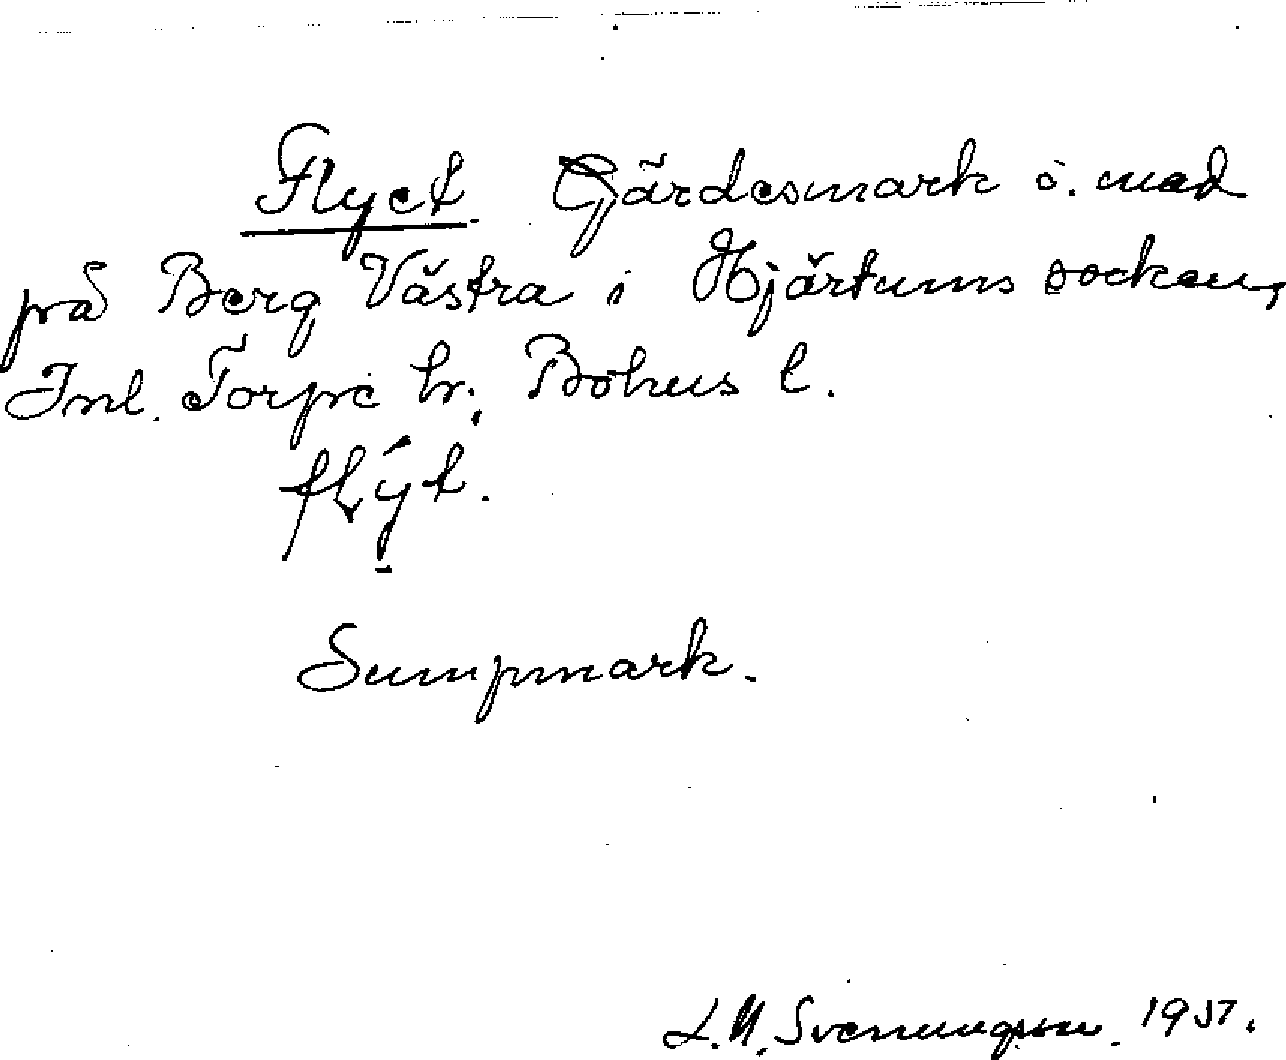 Flyct. Gärdesmark o. mad
på Berg Västra i Hjärtums socken,
Inl. Torpe hr, Bohus l.
flýt.
Sumpmark.
L.M. Svenungsson 1937.